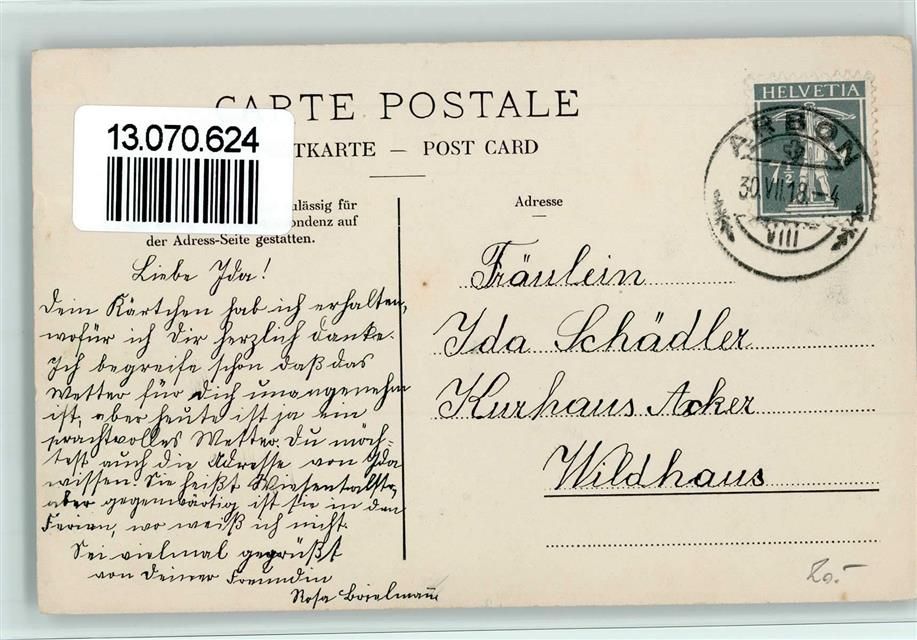 CARTE POSTALE
13.070.624
TKARTE — POST CARD
ulässig für
ondenz auf
der Adress-Seite gestatten.
Adresse
HELVETIA
7½
ARBON
30.VII.18.-4
VIII
Liebe Ida!
Dein Kärtchen hab ich erhalten,
wofür ich Dir herzlich danke.
Ich begreife schon daß das
Wetter für Dich unangenehm
ist, aber heute ist ja ein
prachtvolles Wetter. Du möch-
test auch die Adresse von Ida
wissen. Sie heißt Wiesentalstr,
aber gegenwärtig ist sie in den
Ferien, wo weiß ich nicht.
Sei vielmal gegrüßt
von Deiner Freundin
Rosa
Fräulein
Ida Schädler
Kurhaus Acker
Wildhaus
20.-